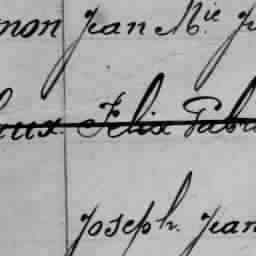 mon Jean M.ie
Felix Gabr
Joseph. Jean